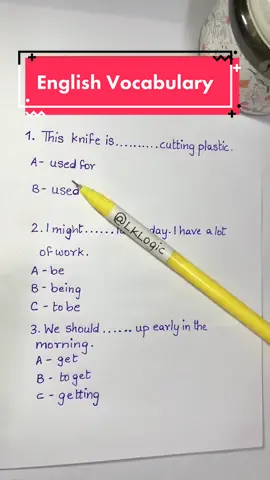 English Vocabulary
1. This knife is.......... cutting plastic.
A- used for
B- used
2. I might...... day. I have a lot
of work.
A - be
B - being
C - to be
3. We should ...... up early in the
morning.
A - get
B - to get
C - getting
@LKLogic